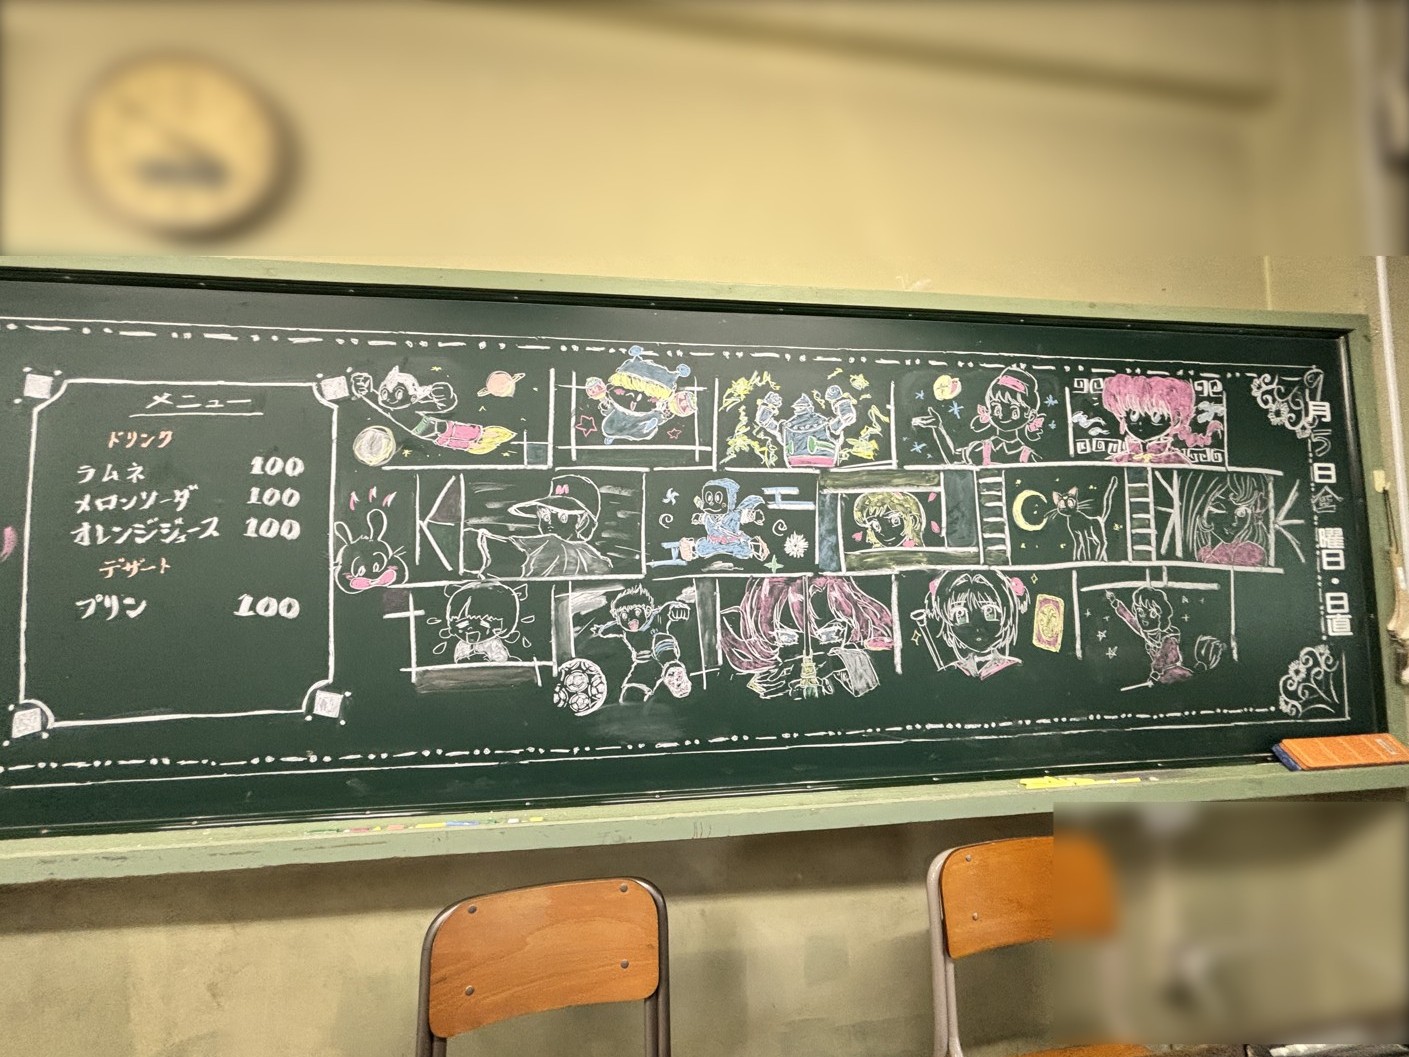 メニュー
ドリンク
ラムネ 100
メロンソーダ 100
オレンジジュース 100
デザート
プリン 100
M
9月5日金曜日・日直